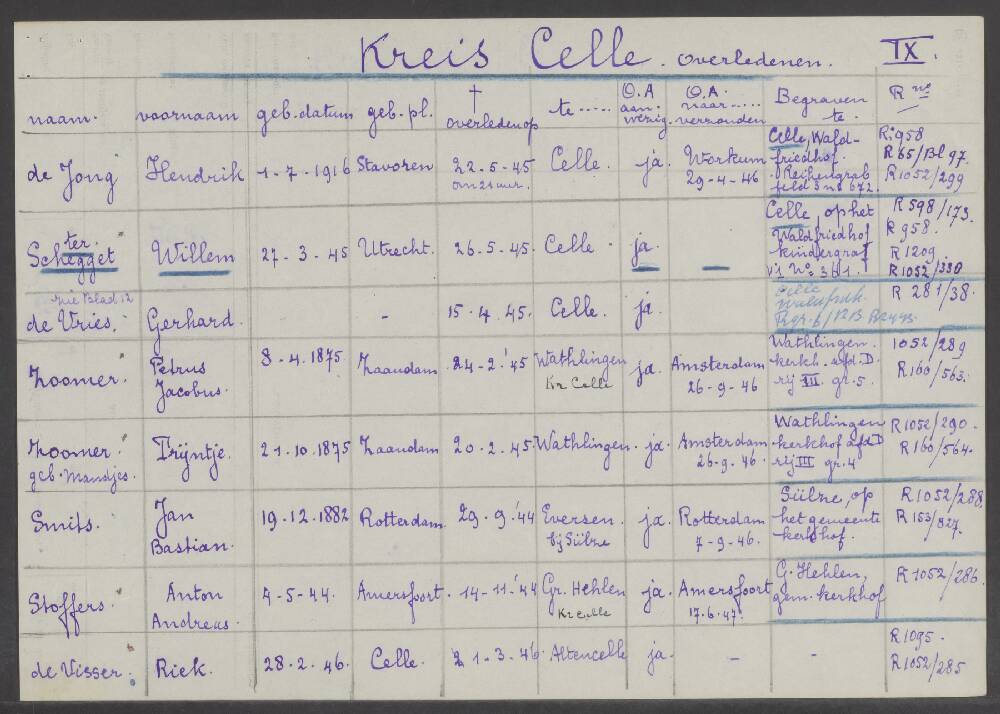 Kreis Celle. overledenen. IX.
naam. voornaam geb. datum geb. pl. † overleden op te ..... O.A aanwezig. O.A. naar..... verzonden Begraven te. R no
de Jong Hendrik 1-7-1916 Stavoren 22-5-45 om 21 uur. Celle. ja. Workum 29-4-46 Celle, Wald-
friedhof. Reihengrab
feld 3 no 672. R. 958
R 65/Bl 97.
R1052/299
ter Schegget Willem 27-3-45 Utrecht. 26-5-45. Celle. ja. — Celle, op het
Waldfriedhof
kindergraf
No: 361. R 598/173.
R 958.
R 1209
R1052/330
zie Blad 12
de Vries. Gerhard. - 15.4.45. Celle. ja. Celle
R 281/38.
Zoomer. Petrus
Jacobus. 8-4.1875. Zaandam 24-2-'45 Wathlingen
Kr Celle ja. Amsterdam
26-9-46 Wathlingen.
kerkh. afd. D.
rij III gr. 5. 1052/289
R160/563.
Zoomer.
geb. Mandjes. Trijntje. 21.10.1875 Zaandam 20-2.45. Wathlingen. ja. Amsterdam
26-9-46. Wathlingen
kerkhof afd D
rij III gr. 4 R1052/290.
R 160/564.
Smits. Jan
Bastian. 19-12.1882 Rotterdam. 29-9.'44 Eversen.
bij Sülze ja. Rotterdam
7-9-46. Sülze, op
het gemeente
kerkhof. R1052/288.
R 153/827.
Stoffers. Anton
Andreas. 4-5-44. Amersfoort. 14-11-'44 Gr. Hehlen
Kr Celle ja. Amersfoort
17.6.47. G. Hehlen,
gem. kerkhof R1052/286.
de Visser. Riek. 28.2.46. Celle. 21-3-46 Altencelle ja. - - R1095.
R1052/285